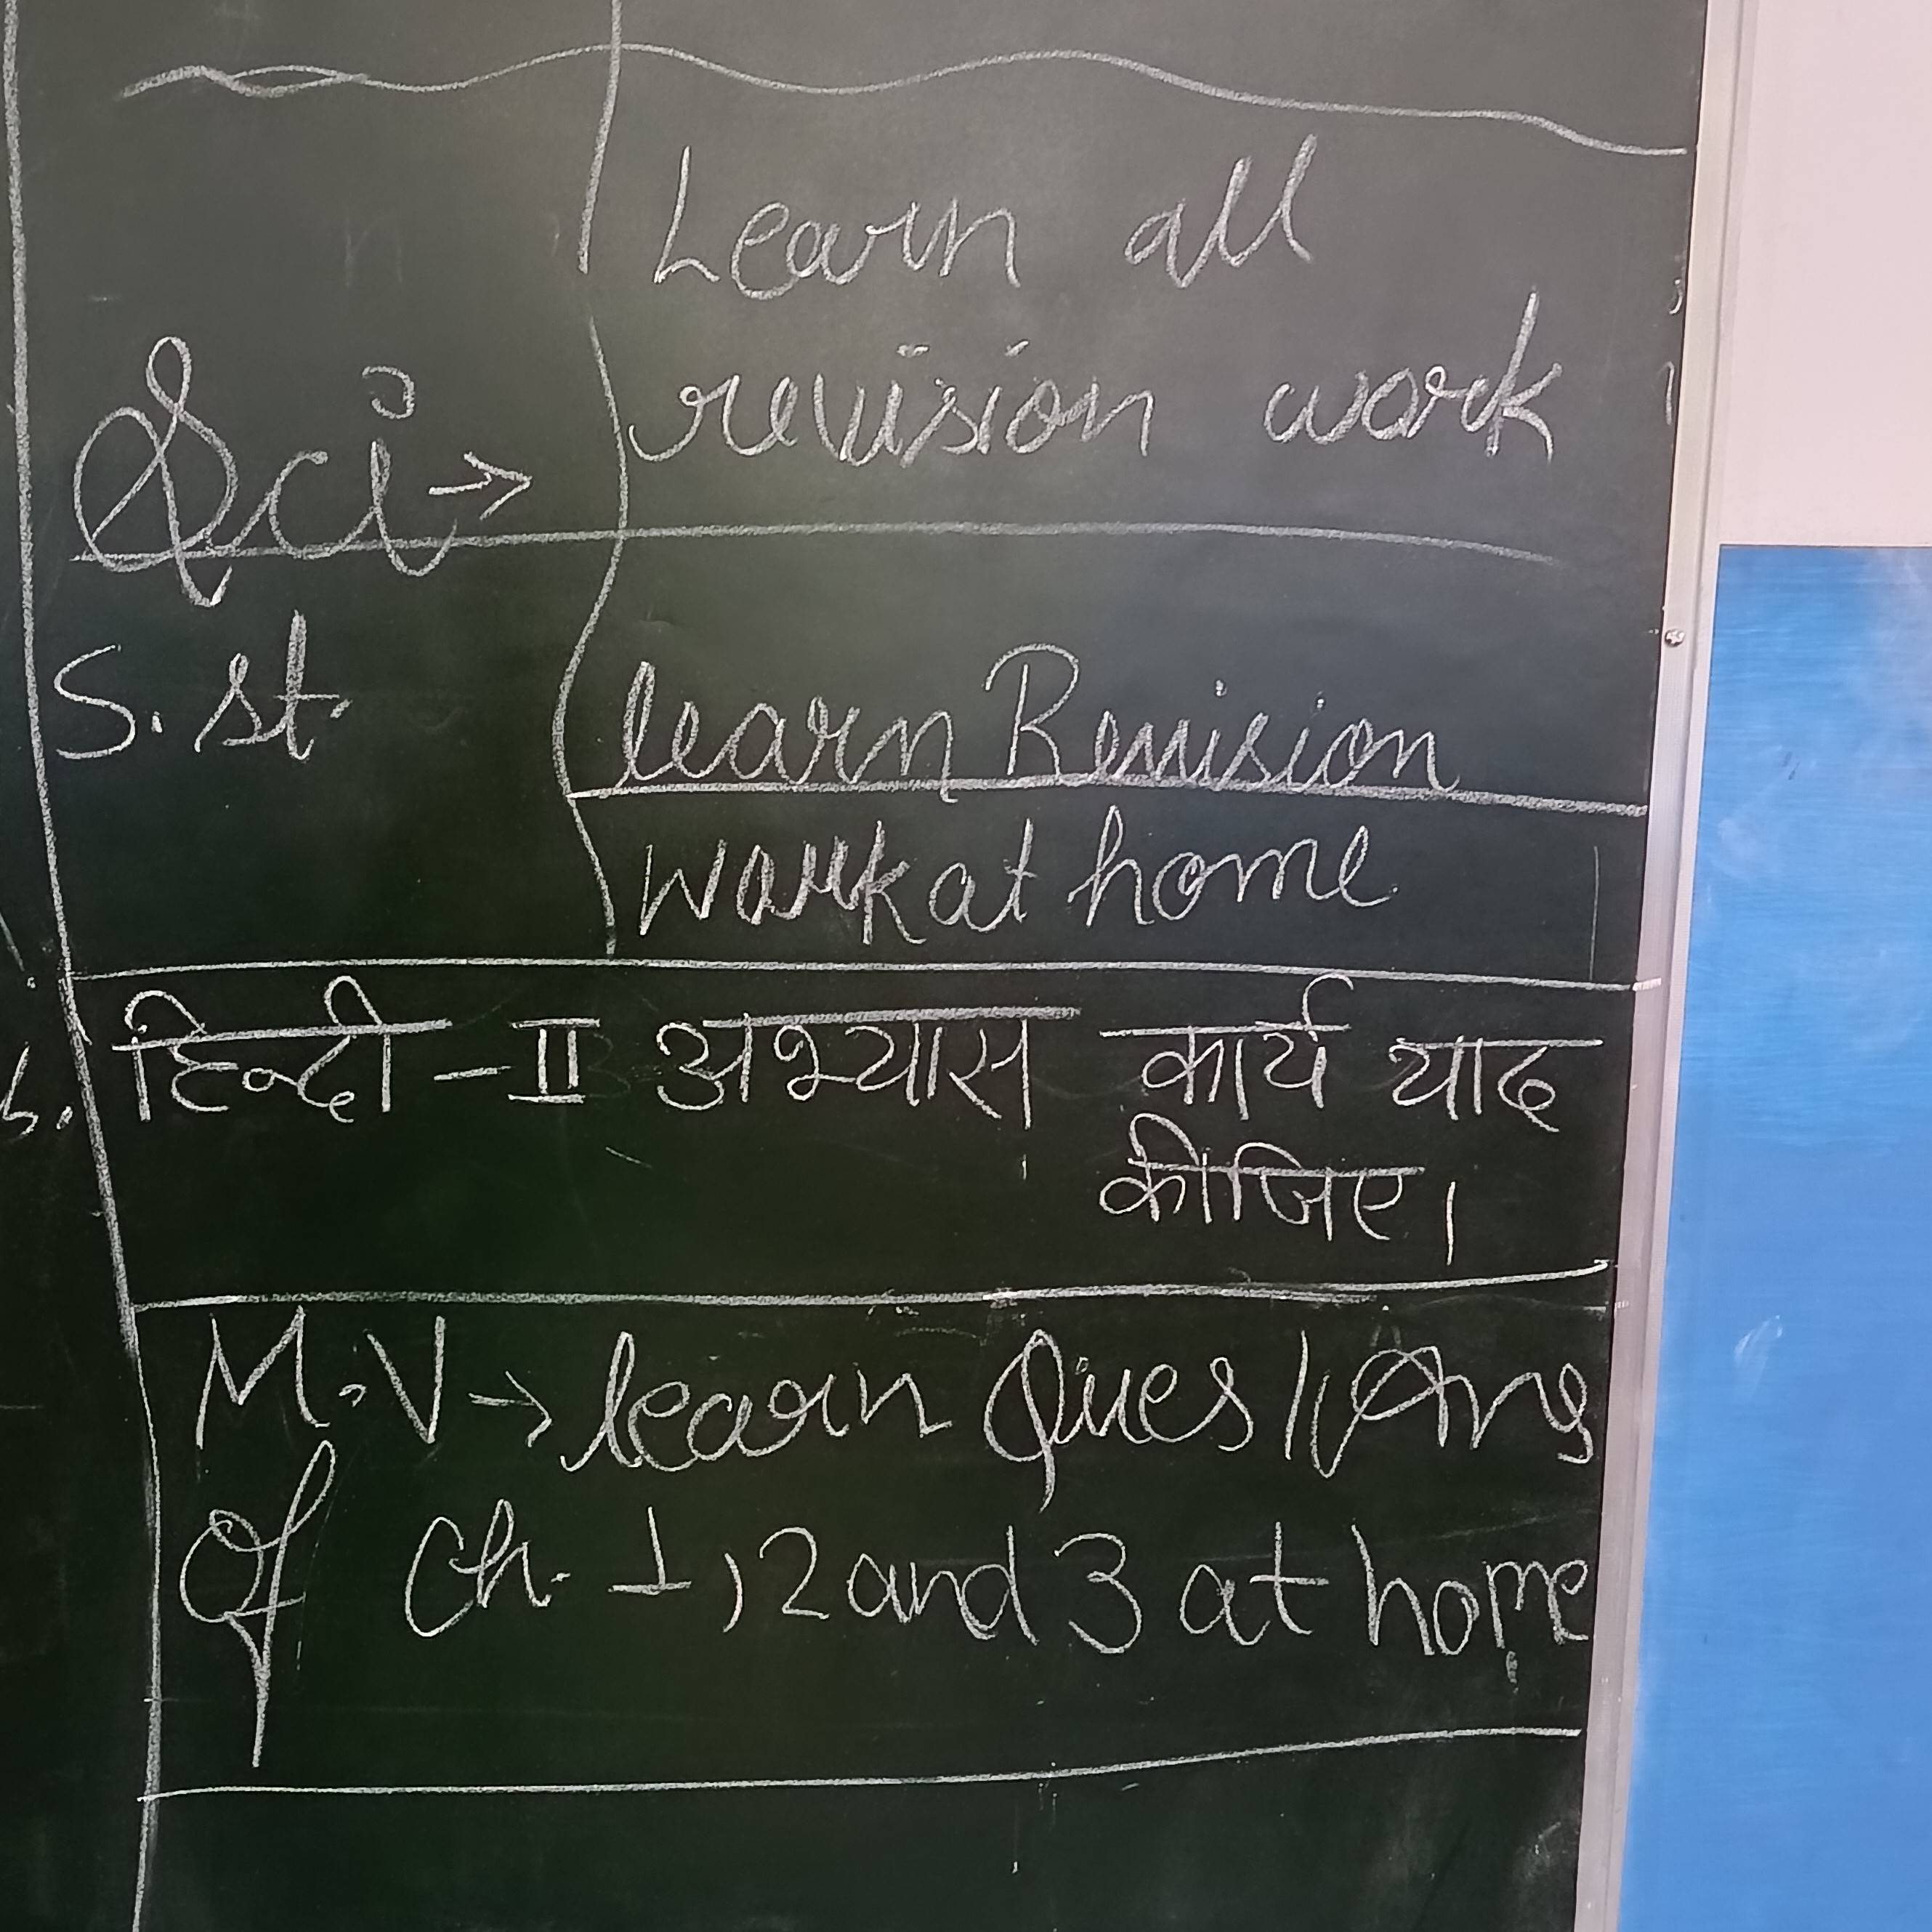 Learn all
Sci → revision work
S. st. learn Revision
work at home
हिन्दी - II अभ्यास कार्य याद
कीजिए।
M.V → learn Ques / Ans
Of Ch. 1, 2 and 3 at home